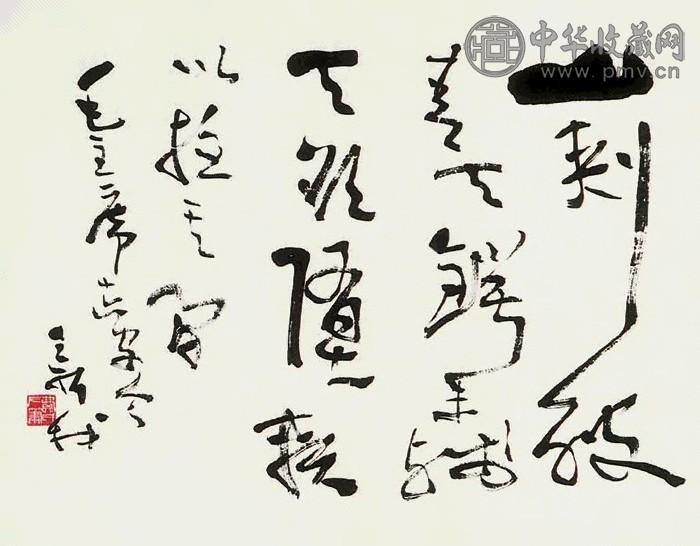 中华收藏网
www.pmv.cn
山刺破
青天鍔未残
天欲墮赖
以拄其间
毛主席十六字令